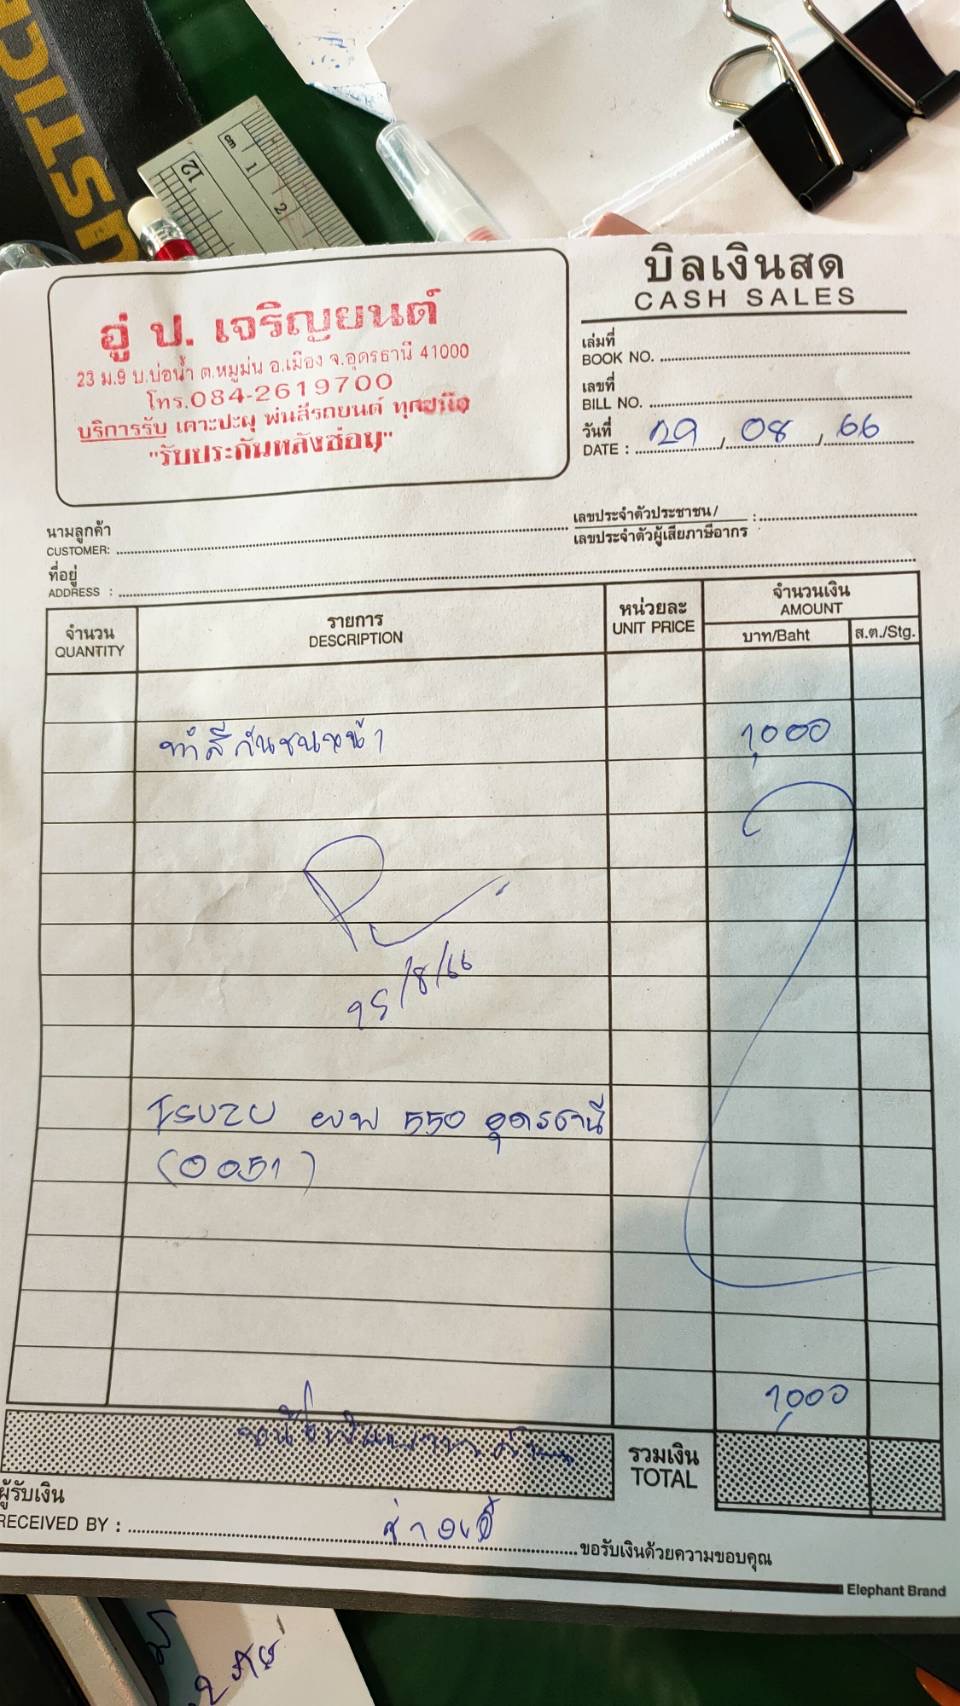 USTICE
cm 1 2
12
บิลเงินสด
CASH SALES
อู่ ป. เจริญยนต์
23 ม.9 บ.บ่อน้ำ ต.หมูม่น อ.เมือง จ.อุดรธานี 41000
โทร.084-2619700
บริการรับ เคาะปะผุ พ่นสีรถยนต์ ทุกชนิด
"รับประกันหลังซ่อม"
เล่มที่
BOOK NO.
เลขที่
BILL NO.
วันที่
DATE : 29 / 08 / 66
นามลูกค้า
CUSTOMER:
เลขประจำตัวประชาชน/
เลขประจำตัวผู้เสียภาษีอากร :
ที่อยู่
ADDRESS :
จำนวน
QUANTITY
รายการ
DESCRIPTION
หน่วยละ
UNIT PRICE
จำนวนเงิน
AMOUNT
บาท/Baht
ส.ต./Stg.
ทำสีกันชนหน้า 1,000
/8/66
ISUZU ยพ 550 อุดรธานี
(0051)
1,000
รวมเงิน
TOTAL
ผู้รับเงิน
RECEIVED BY :
ขอรับเงินด้วยความขอบคุณ
Elephant Brand